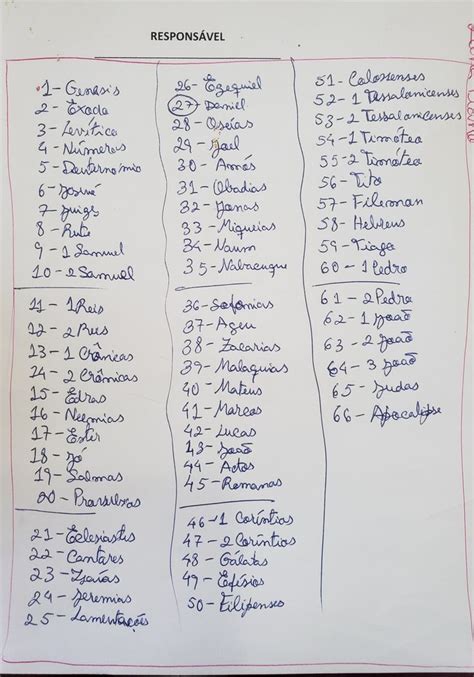 RESPONSÁVEL
1 - Genesis
2 - Exodo
3 - Levítico
4 - Números
5 - Deuternomio
6 - Josué
7 - Juizes
8 - Rute
9 - 1 Samuel
10 - 2 Samuel
11 - 1 Reis
12 - 2 Reis
13 - 1 Crônicas
14 - 2 Crônicas
15 - Edras
16 - Neemias
17 - Ester
18 - Jó
19 - Salmos
20 - Proverbios
21 - Eclesiastes
22 - Cantares
23 - Isaías
24 - Jeremias
25 - Lamentações
26 - Ezequiel
27 - Daniel
28 - Oséias
29 - Joel
30 - Amós
31 - Obadias
32 - Jonas
33 - Miqueias
34 - Naum
35 - Nabacuque
36 - Sofonias
37 - Ageu
38 - Zacarias
39 - Malaquias
40 - Mateus
41 - Marcos
42 - Lucas
43 - João
44 - Actos
45 - Romanos
46 - 1 Coríntios
47 - 2 Coríntios
48 - Gálatas
49 - Efésios
50 - Filipenses
51 - Colossenses
52 - 1 Tessalonicenses
53 - 2 Tessalonicenses
54 - 1 Timóteo
55 - 2 Timóteo
56 - Tito
57 - Filemon
58 - Hebreus
59 - Tiago
60 - 1 Pedro
61 - 2 Pedro
62 - 1 João
63 - 2 João
64 - 3 João
65 - Judas
66 - Apocalipse